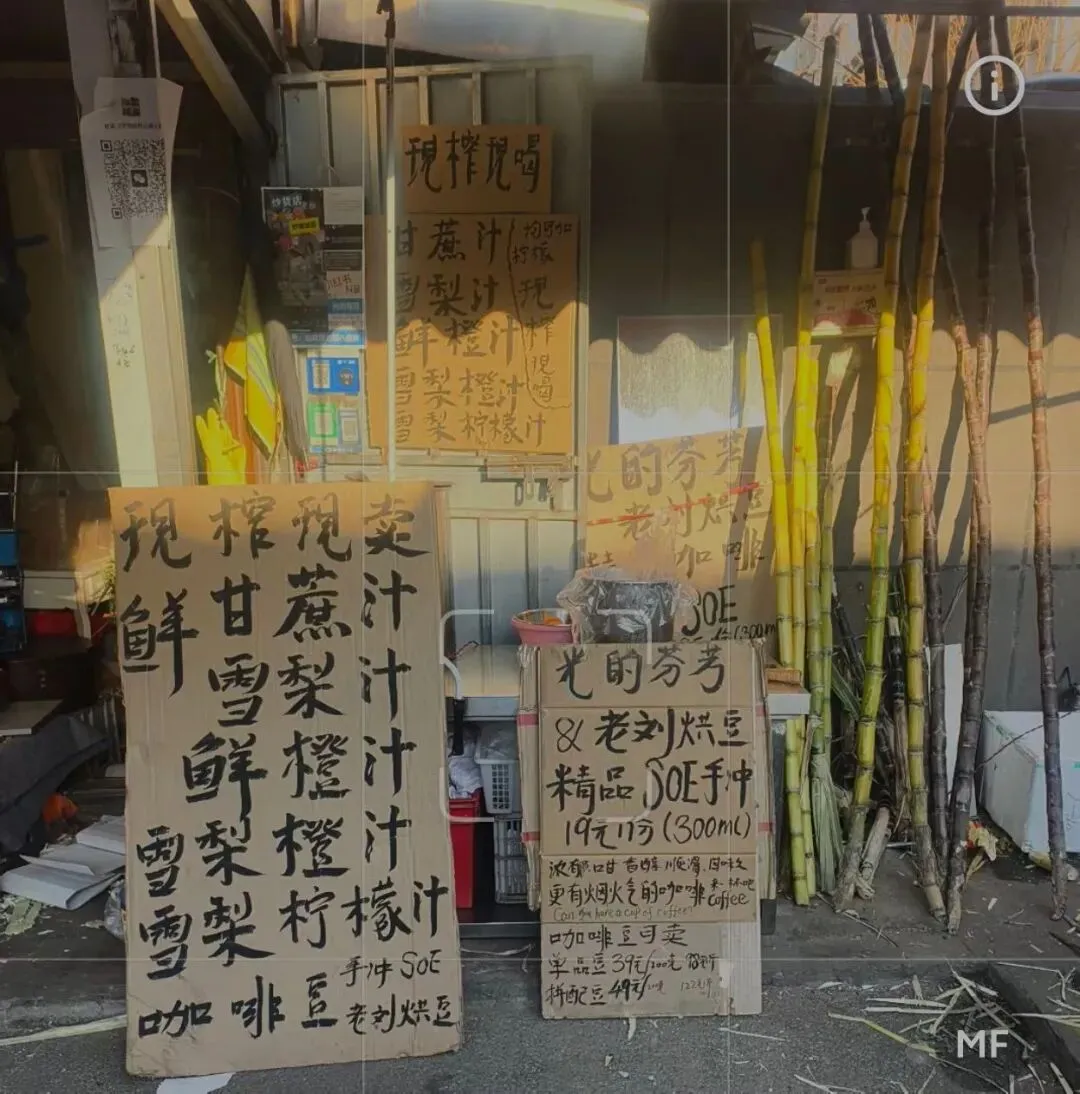 現榨現喝
甘蔗汁
雪梨汁
鲜橙汁
雪梨橙汁
雪梨柠檬汁
均可加
柠檬
现榨现喝
光的芬芳
老刘烘豆
咖啡
SOE
(300m
现榨现卖
鲜甘蔗汁
雪梨汁
鲜橙汁
雪梨橙汁
雪梨柠檬汁
手冲SOE
咖啡豆老刘烘豆
光的芬芳
&老刘烘豆
精品SOE手冲
19元1份(300ml)
更有烟火气的咖啡来一杯吧
coffee
Can you have a cup of coffee?
咖啡豆可卖
单品豆39元/100克
拼配豆49元/
MF